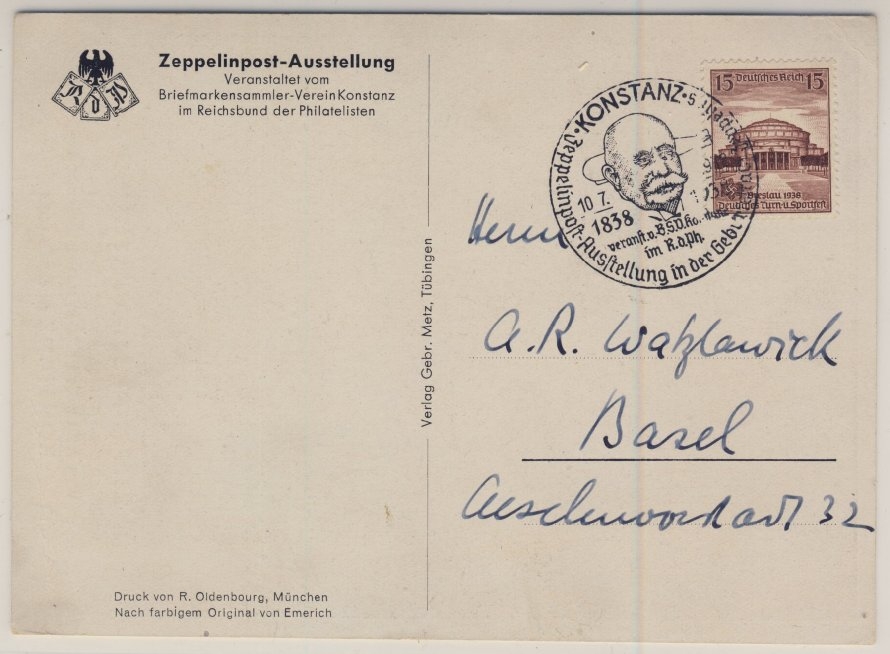 Zeppelinpost-Ausstellung
Veranstaltet vom
Briefmarkensammler-Verein Konstanz
im Reichsbund der Philatelisten
R d P
Verlag Gebr. Metz, Tübingen
Druck von R. Oldenbourg, München
Nach farbigem Original von Emerich
15 Deutsches Reich 15
Breslau 1938
Deutsches Turn- u. Sportfest
KONSTANZ
Zeppelinpost-Ausstellung in der Gebr
10.7.
1838
veranst. v. B.S.V.
im R.d.Ph.
Herrn
A. R. Watzlawick
Basel
32